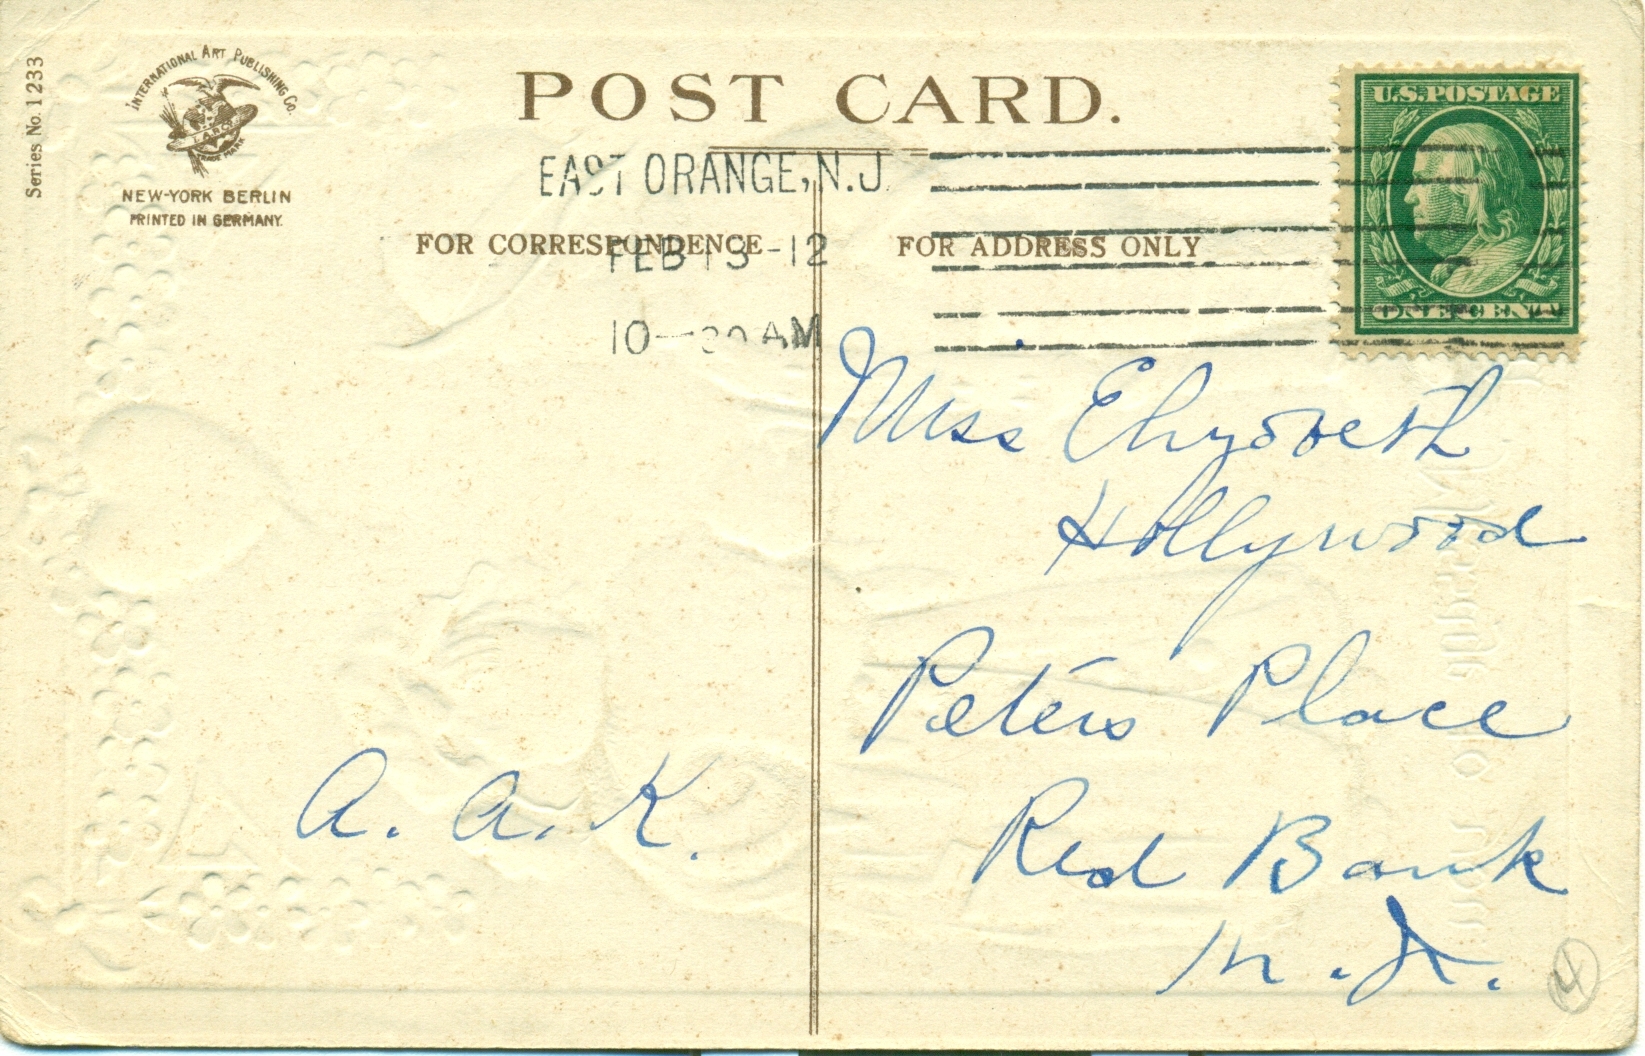 Series No. 1233
INTERNATIONAL ART PUBLISHING Co.
TRADE MARK
NEW-YORK BERLIN
PRINTED IN GERMANY.
POST CARD.
EAST ORANGE, N.J.
FEB 13 -12
10— AM
FOR CORRESPONDENCE
FOR ADDRESS ONLY
U.S. POSTAGE
ONE CENT
Miss
Hollywood
Peters Place
Red Bank
N. J.
A. A. K.
4